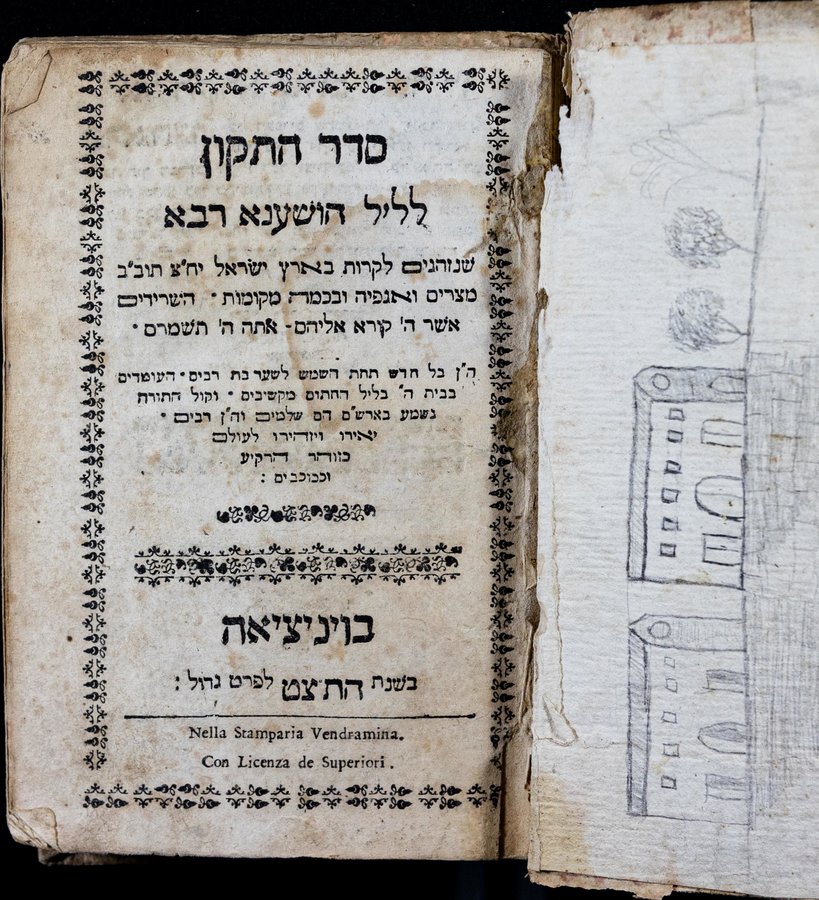 סדר התקון
לליל הושענא רבא
שנוהגים לקרות בארץ ישראל יח"צ תוב"ב
מצרים ואנפיה ובכמה מקומות · השרידים
אשר ה' קורא אליהם · אתה ה' תשמרם ·
ה"ן בל חדש תחת השמש לשער בת רבים · העומדים
בבית ה' בליל החתום מקשיבים · וקול התורה
נשמע בארש"ם הם שלמים וה"ן רבים ·
יאירו ויזהירו לעולם
כזוהר הרקיע
וככוכבים :
בויניציאה
בשנת התצט לפרט גדול :
Nella Stamparia Vendramina.
Con Licenza de Superiori.